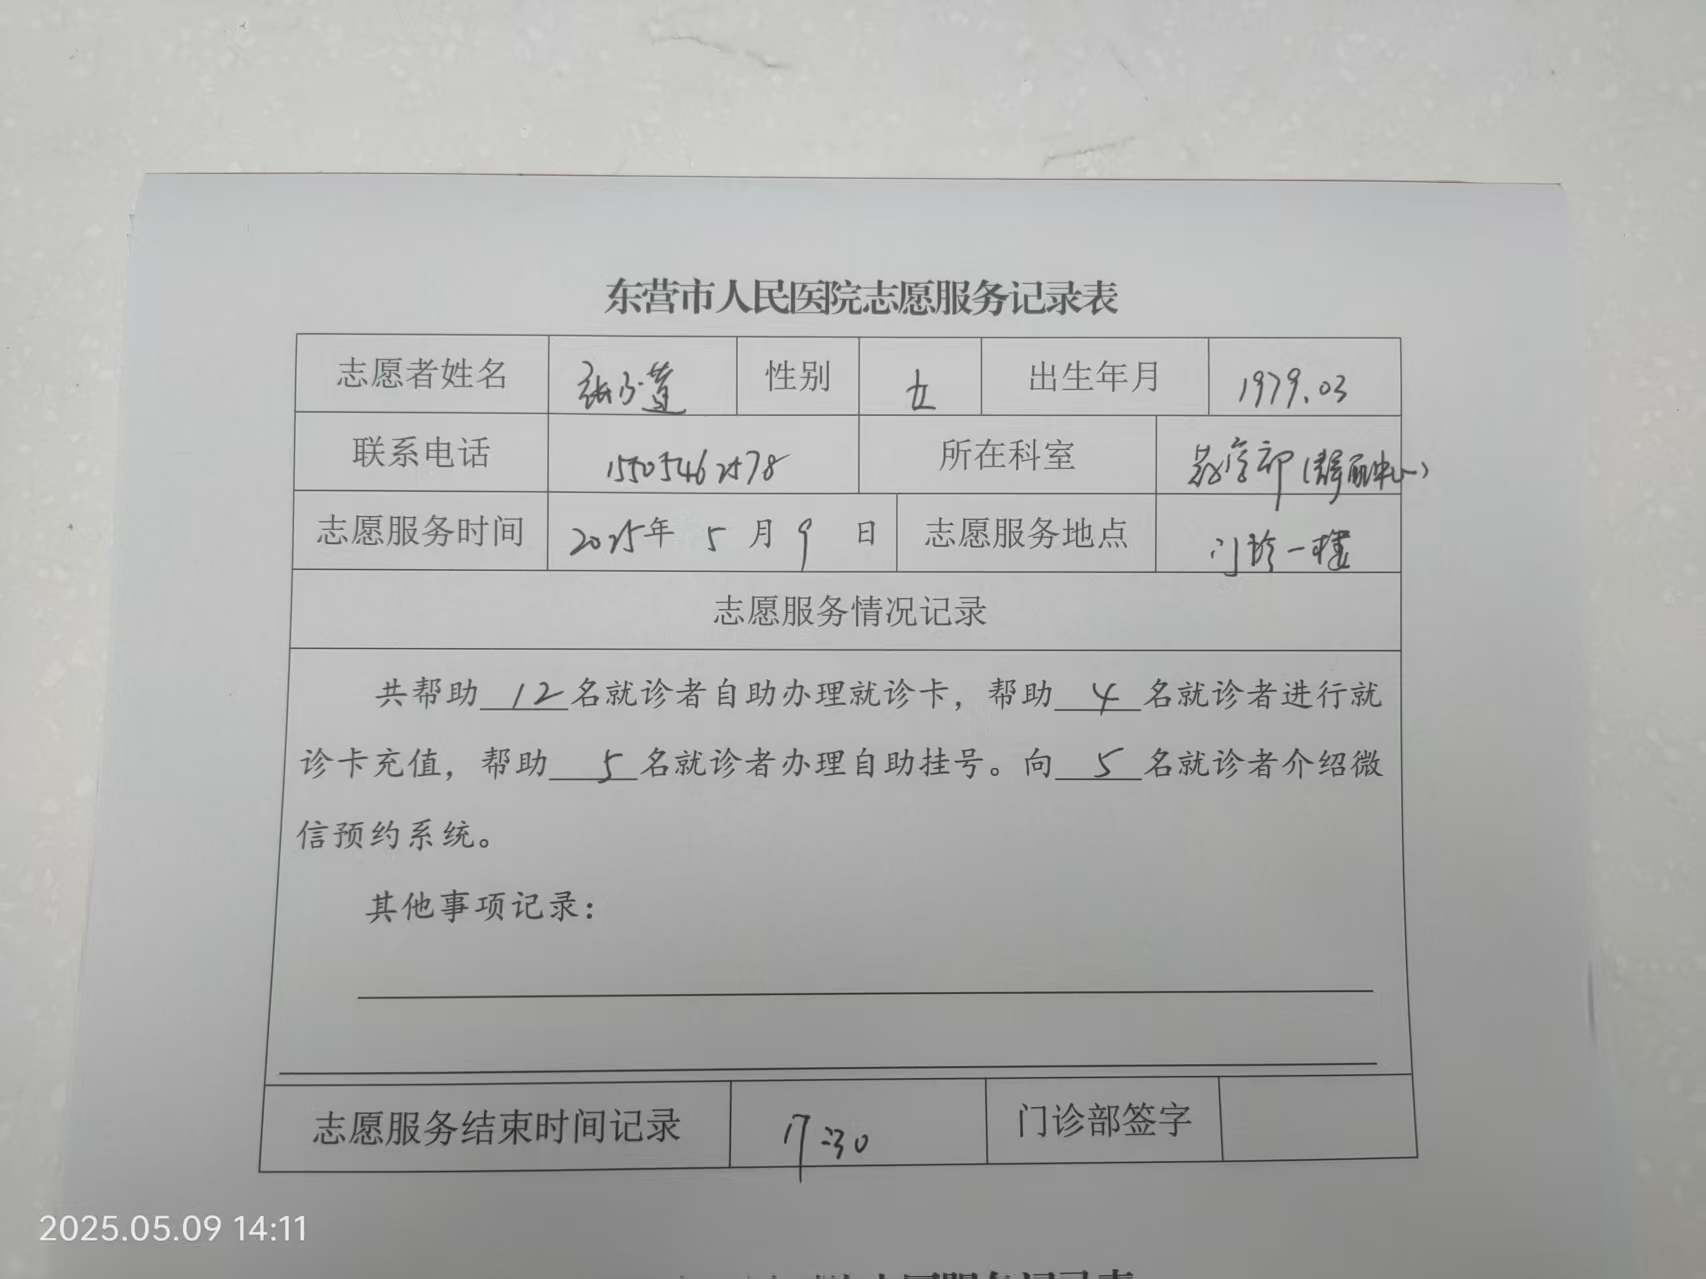 东营市人民医院志愿服务记录表
志愿者姓名 张 性别 女 出生年月 1979.03
联系电话 15505462578 所在科室 药学部(静配中心)
志愿服务时间 2025年 5 月 9 日 志愿服务地点 门诊一楼
志愿服务情况记录
共帮助 12 名就诊者自助办理就诊卡，帮助 4 名就诊者进行就
诊卡充值，帮助 5 名就诊者办理自助挂号。向 5 名就诊者介绍微
信预约系统。
其他事项记录：
志愿服务结束时间记录 17:30 门诊部签字
2025.05.09 14:11